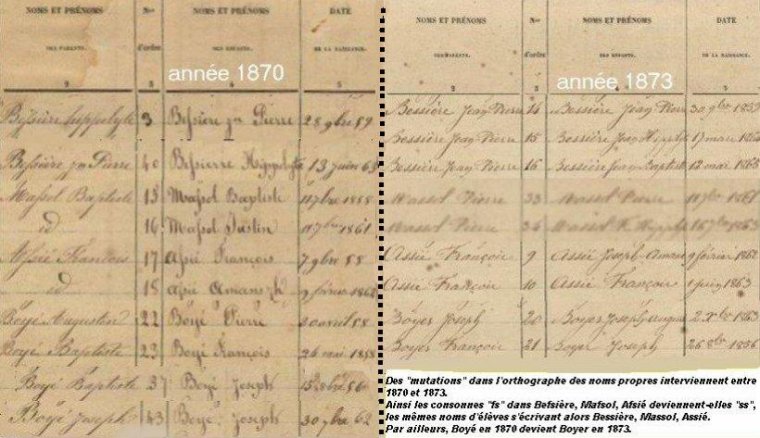 NOMS ET PRÉNOMS
DES PARENTS.
Nos
d'ordre
NOMS ET PRÉNOMS
DES ENFANTS.
DATE
DE LA NAISSANCE.
2 3 4 5
année 1870
Befsière hyppolyte 3 Befsière Jn Pierre 28 9bre 59
Befsière Jn Pierre 40 Befsierre Hyppolyte 13 juin 63
Mafsol Baptiste 15 Mafsol Baptiste 11 7bre 1858
id 16 Mafsol Justin 11 7bre 1861
Afsié François 17 Afsié François 7 9bre 58
id 18 Afsié Amans 9 février
Boyé Augustin 22 Boyé Pierre avril 58
Boyé Baptiste 23 Boyé François 26 mai 1858
Boyé Baptiste 37 Boyé Joseph 8bre 56
Boyé Joseph 43 Boyé Joseph 30 7bre 62
NOMS ET PRÉNOMS
Nos
d'ordre
NOMS ET PRÉNOMS
DES ENFANTS.
DATE
DE LA NAISSANCE.
2 3 4 5
année 1873
Bessière Jean Pierre 14 Bessière Jean Pierre 30 9bre
Bessière Jean Pierre 15 Bessière Jean Hippte 17 mars
Bessière Jean Pierre 16 Bessière Jean Baptiste 12 mai
Massol Pierre 33 Massol Pierre 11 7bre 1861
Massol Pierre 34 Massol Hippte 7bre 1863
Assié François 9 Assié Joseph Amans 9 février
Assié François 10 Assié François 1 juin 1863
Boyer Joseph 20 Boyer Joseph Augus 2 Xbre 1863
Boyer François 21 Boyer Joseph 26 8bre 1856
Des "mutations" dans l'orthographe des noms propres interviennent entre
1870 et 1873.
Ainsi les consonnes "fs" dans Befsière, Mafsol, Afsié deviennent-elles "ss",
les mêmes noms d'élèves s'écrivant alors Bessière, Massol, Assié.
Par ailleurs, Boyé en 1870 devient Boyer en 1873.